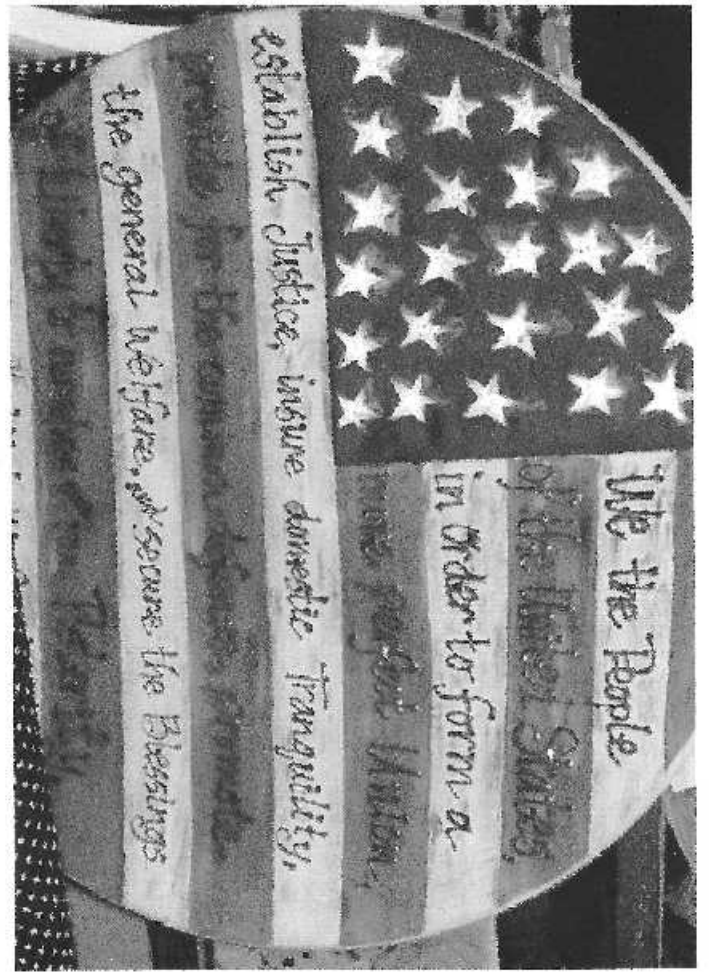 We the People
of the United States,
in Order to form a
more perfect Union,
establish Justice, insure domestic Tranquility,
provide for the common defence, promote
the general Welfare, & secure the Blessings
of Liberty to ourselves & our Posterity